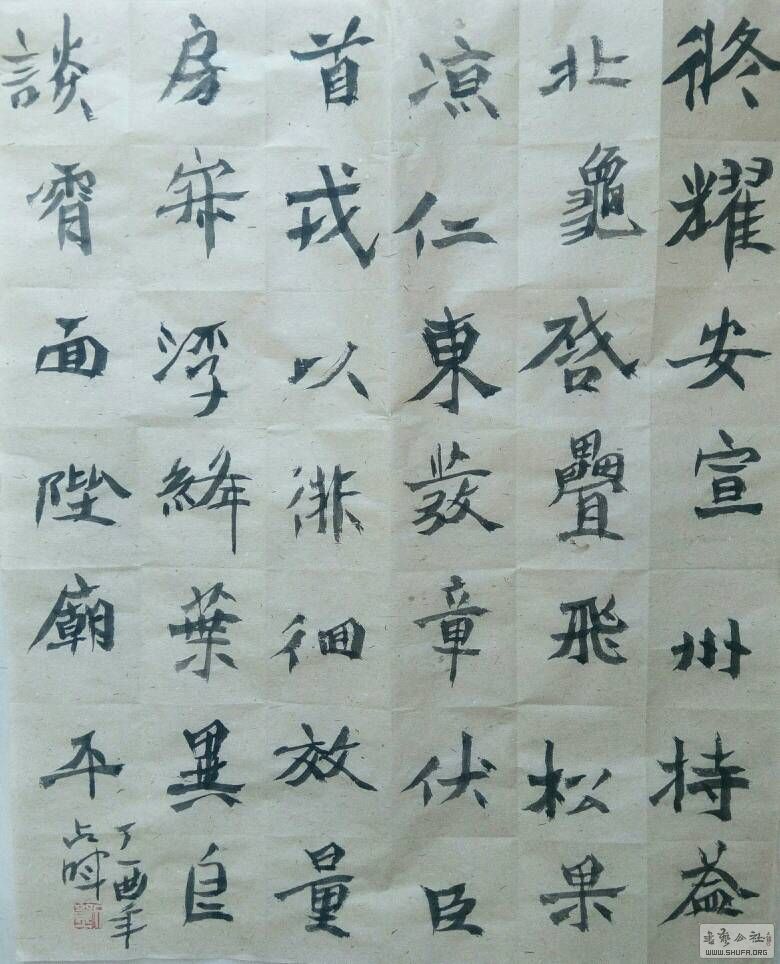 耀安宣州持益
北龜啓疊飛松果
凉仁東發章伏臣
首戎以徘徊效量
房浮絳葉異自
談霄面陛廟平
丁酉年
占
书艺公社
WWW.SHUFA.ORG